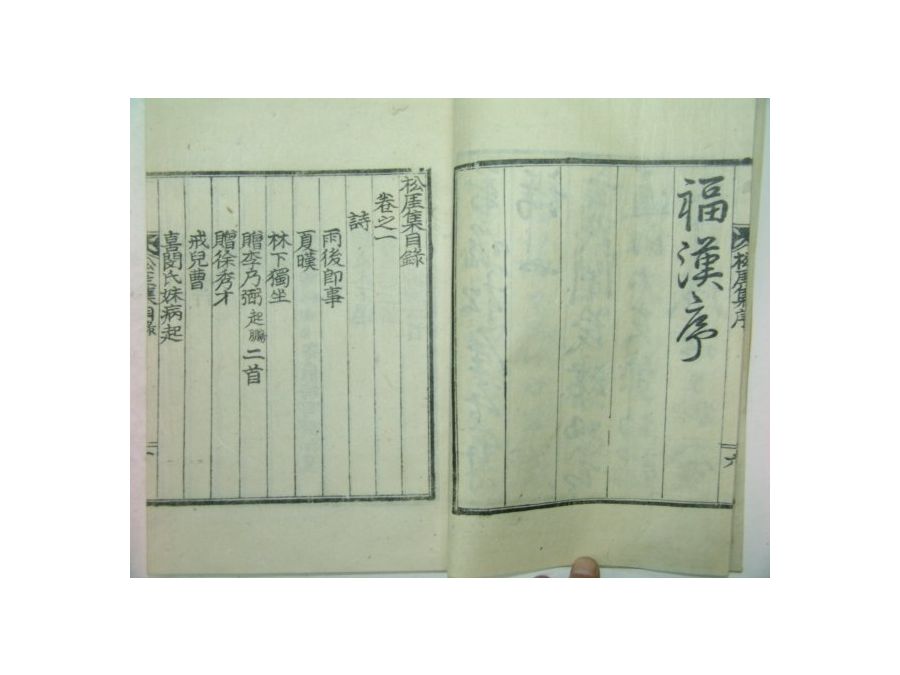 福漢序
松厓集序
六
松厓集目錄
卷之一
詩
雨後卽事
夏暵
林下獨坐
贈李乃弼起鵬二首
贈徐秀才
戒兒曹
喜閔氏妹病起
松厓集目錄
一